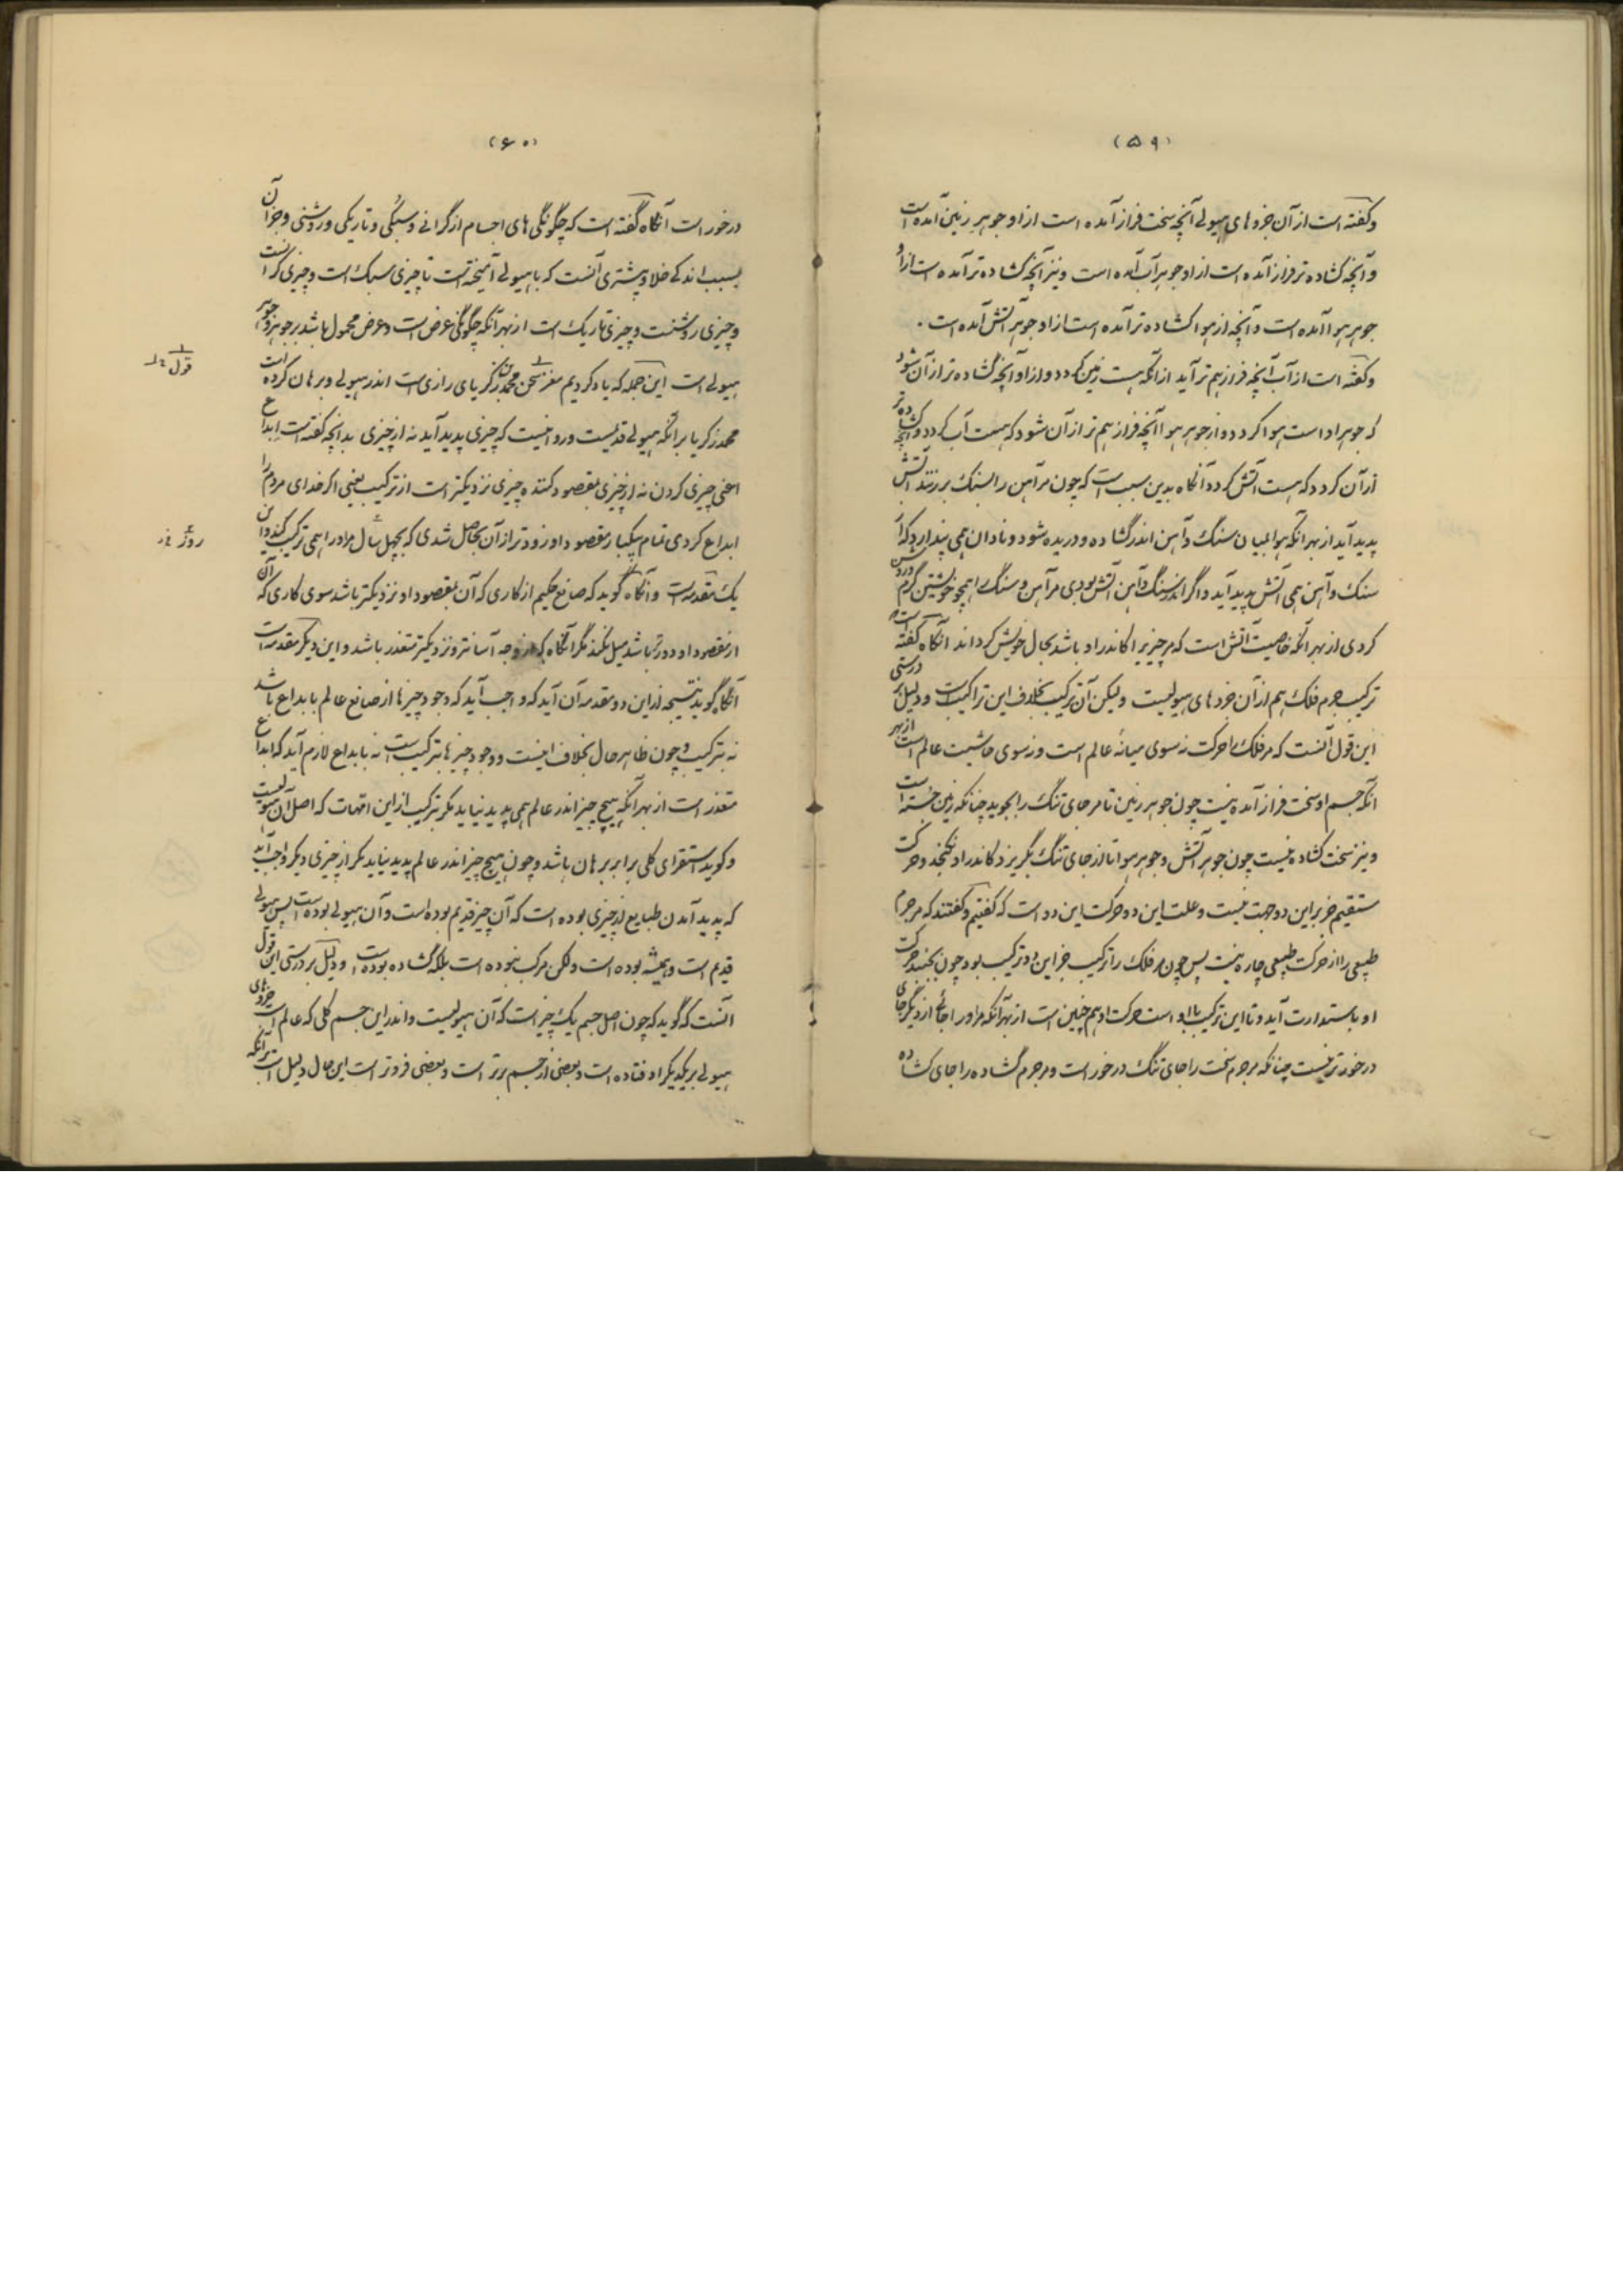 (۵۹)
وگفته است از آن جزوهای هیولی آنچه سخت فراز آمده است از او جوهر زمین آمده است
و آنچه گشاده تر فراز آمده است از او جوهر آب آمده است و نیز آنچه گشاده تر آمده است از او
جوهر هوا آمده است و آنچه از هوا گشاده تر آمده است از او جوهر آتش آمده است .
وگفته است از آب آنچه فراز هم تر آید از آنکه هست زمین گردد و از او آنچه گشاده تر از آن شود
که جوهر او است هوا گردد و از جوهر هوا آنچه فراز هم تر از آن شود که هست آب گردد و آنچه گشاده تر
از آن گردد که هست آتش گردد و آنگاه بدین سبب است که چون مر آهن را بسنگ بر زنند آتش
پدید آید از بهر آنکه هوا بمیان سنگ و آهن اندر گشاده و دریده شود و نادان همی پندارد که از
سنگ و آهن همی آتش پدید آید و اگر اندر سنگ و آهن آتش بودی مر آهن و سنگ را همچو خویشتن گرم و روشن
کردی از بهر آنکه خاصیت آتش است که مر چیزیرا کاندر او باشد بحال خویش گرداند آنگاه گفته است که
ترکیب جرم فلک هم از آن جزوهای هیولیست ولیکن آن ترکیب بخلاف این تراکیبست و دلیل بر درستی
این قول آنست که مر فلک را حرکت نه سوی میانهٔ عالم است و نه سوی حاشیت عالم است از بهر
آنکه جسم او سخت فراز آمده نیست چون جوهر زمین تا مر جای تنگ را بجوید چنانکه زمین جسته است
و نیز سخت گشاده نیست چون جوهر آتش و جوهر هوا تا از جای تنگ بگریزد کاندر او نگنجد و حرکت
مستقیم جز بر این دو جهت نیست و علت این دو حرکت این دو است که گفتیم و گفتند که مر جرم
طبیعی را از حرکت طبیعی چاره نیست پس چون مر فلک را ترکیب جز این دو ترکیب بود چون بجنبد حرکت
او باستدارت آید و تا این ترکیب با او است حرکت او هم چنین است از بهر آنکه مر او را جائی از دیگر جای
درخورتر نیست چنانکه مر جرم سخت را جای تنگ درخور است و مر جرم گشاده را جای گشاده
(۶۰)
درخور است آنگاه گفته است که چگونگی های اجسام از گرانی و سبکی و تاریکی و روشنی و جز آن
بسبب اندکی خلا و بیشتری آنست که با هیولی آمیخته است تا چیزی سبک است و چیزی گرانست
و چیزی روشنست و چیزی تاریک است از بهر آنکه چگونگی عرض است و عرض محمول باشد بر جوهر و جوهر
هیولی است این جمله که یاد کردیم مغز سخن محمد بن زکریای رازی است اندر هیولی و برهان کرده است
محمد زکریا بر آنکه هیولی قدیمست و روا نیست که چیزی پدید آید نه از چیزی بدانچه گفته است ابداع
اعنی چیزی کردن نه از چیزی بمقصود کننده چیزی نزدیکتر است از ترکیب یعنی اگر خدای مردم را
ابداع کردی تمام بیکبار مقصود او زودتر از آن بحاصل شدی که بچهل سال مر او را همی ترکیب کند و این
یک مقدمه است و آنگاه گوید که صانع حکیم از کاری که آن بمقصود او نزدیکتر باشد سوی کاری که آن
از مقصود او دورتر باشد میل نکند مگر آنگاه که از وجه آسانتر و نزدیکتر متعذر باشد و این دیگر مقدمه است
آنگاه گوید نتیجه از این دو مقدمه آن آید که واجب آید که وجود چیزها از صانع عالم بابداع باشد
نه بترکیب و چون ظاهر حال بخلاف اینست و وجود چیزها بترکیب است نه بابداع لازم آید که ابداع
متعذر است از بهر آنکه هیچ چیز اندر عالم همی پدید نیاید مگر بترکیب از این امهات که اصل آن هیولیست
و گوید استقرای کلی برابر برهان باشد و چون هیچ چیز اندر عالم پدید نیاید مگر از چیزی دیگر واجب آید
که پدید آمدن طبایع از چیزی بوده است که آن چیز قدیم بوده است و آن هیولی بوده است پس هیولی
قدیم است و همیشه بوده است ولکن مرکب نبوده است بلکه گشاده بوده است و دلیل بر درستی این قول
آنست که گوید که چون اصل جسم یک چیز است که آن هیولیست و اندر این جسم کلی که عالم است جزوهای
هیولی بر یکدیگر اوفتاده است و بعضی از جسم برتر است و بعضی فروتر است این حال دلیل است بر آنکه
قول
روز